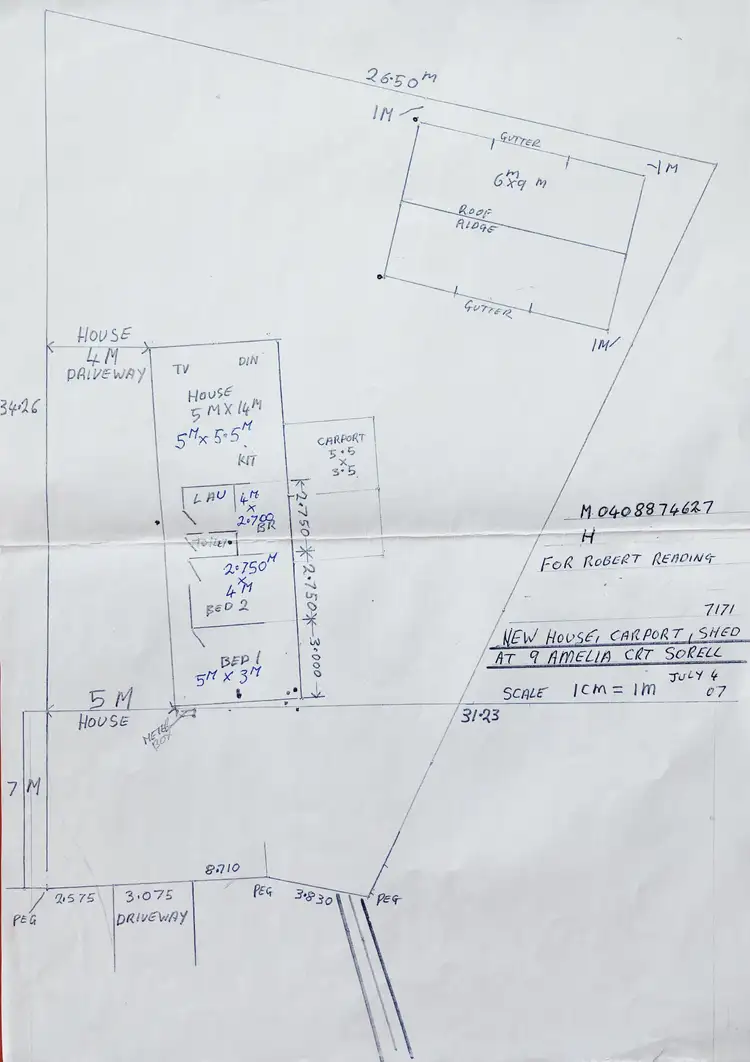 26.50 M
1M
GUTTER
1M
6M X 9 M
ROOF
RIDGE
GUTTER
1M
HOUSE
4 M
DRIVEWAY
34.26
TV
DIN
HOUSE
5 M X 14 M
5M X 5.5M
KIT
CARPORT
5.5
X
3.5
LAU
4M
X
2.700
BR
TOILET
2.750M
X
4M
BED 2
2.750
2.750
3.000
BED 1
5M X 3M
M 0408874627
H
FOR ROBERT READING
7171
NEW HOUSE, CARPORT, SHED
AT 9 AMELIA CRT SORELL
SCALE 1CM = 1M JULY 4
07
5 M
HOUSE
METER
BOX
31.23
7 M
8.710
2.575
3.075
DRIVEWAY
PEG
PEG
3.830
PEG